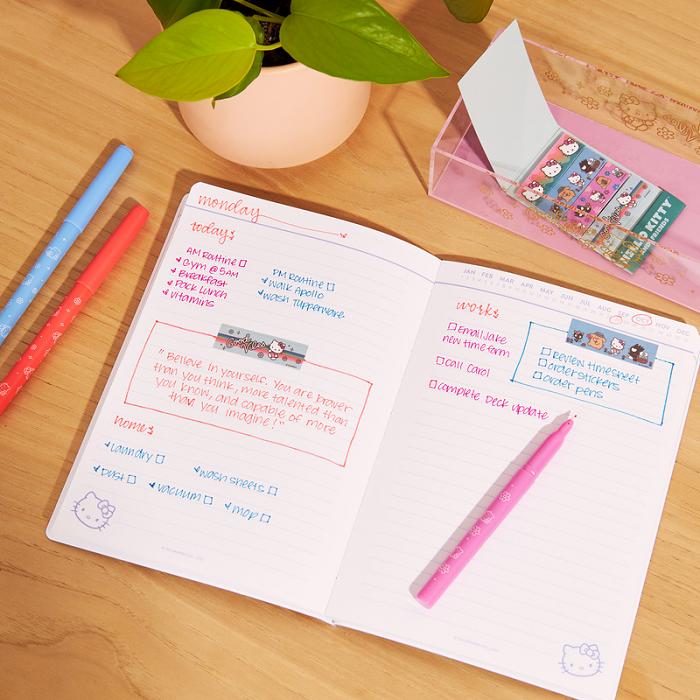 monday
today:
AM Routine
Gym @ 5AM
Breakfast
Pack Lunch
Vitamins
PM Routine
Walk Apollo
Wash Tupperware
"Believe in yourself. You are braver
than you think, more talented than
you know, and capable of more
than you imagine!"
home:
Laundry
wash sheets
Dust
vacuum
mop
JAN FEB MAR APR MAY JUN JUL AUG SEP OCT NOV DEC
work:
Email Jake
new time form
Call Carol
Complete Deck update
Review timesheet
order stickers
order pens
HELLO KITTY
AND FRIENDS